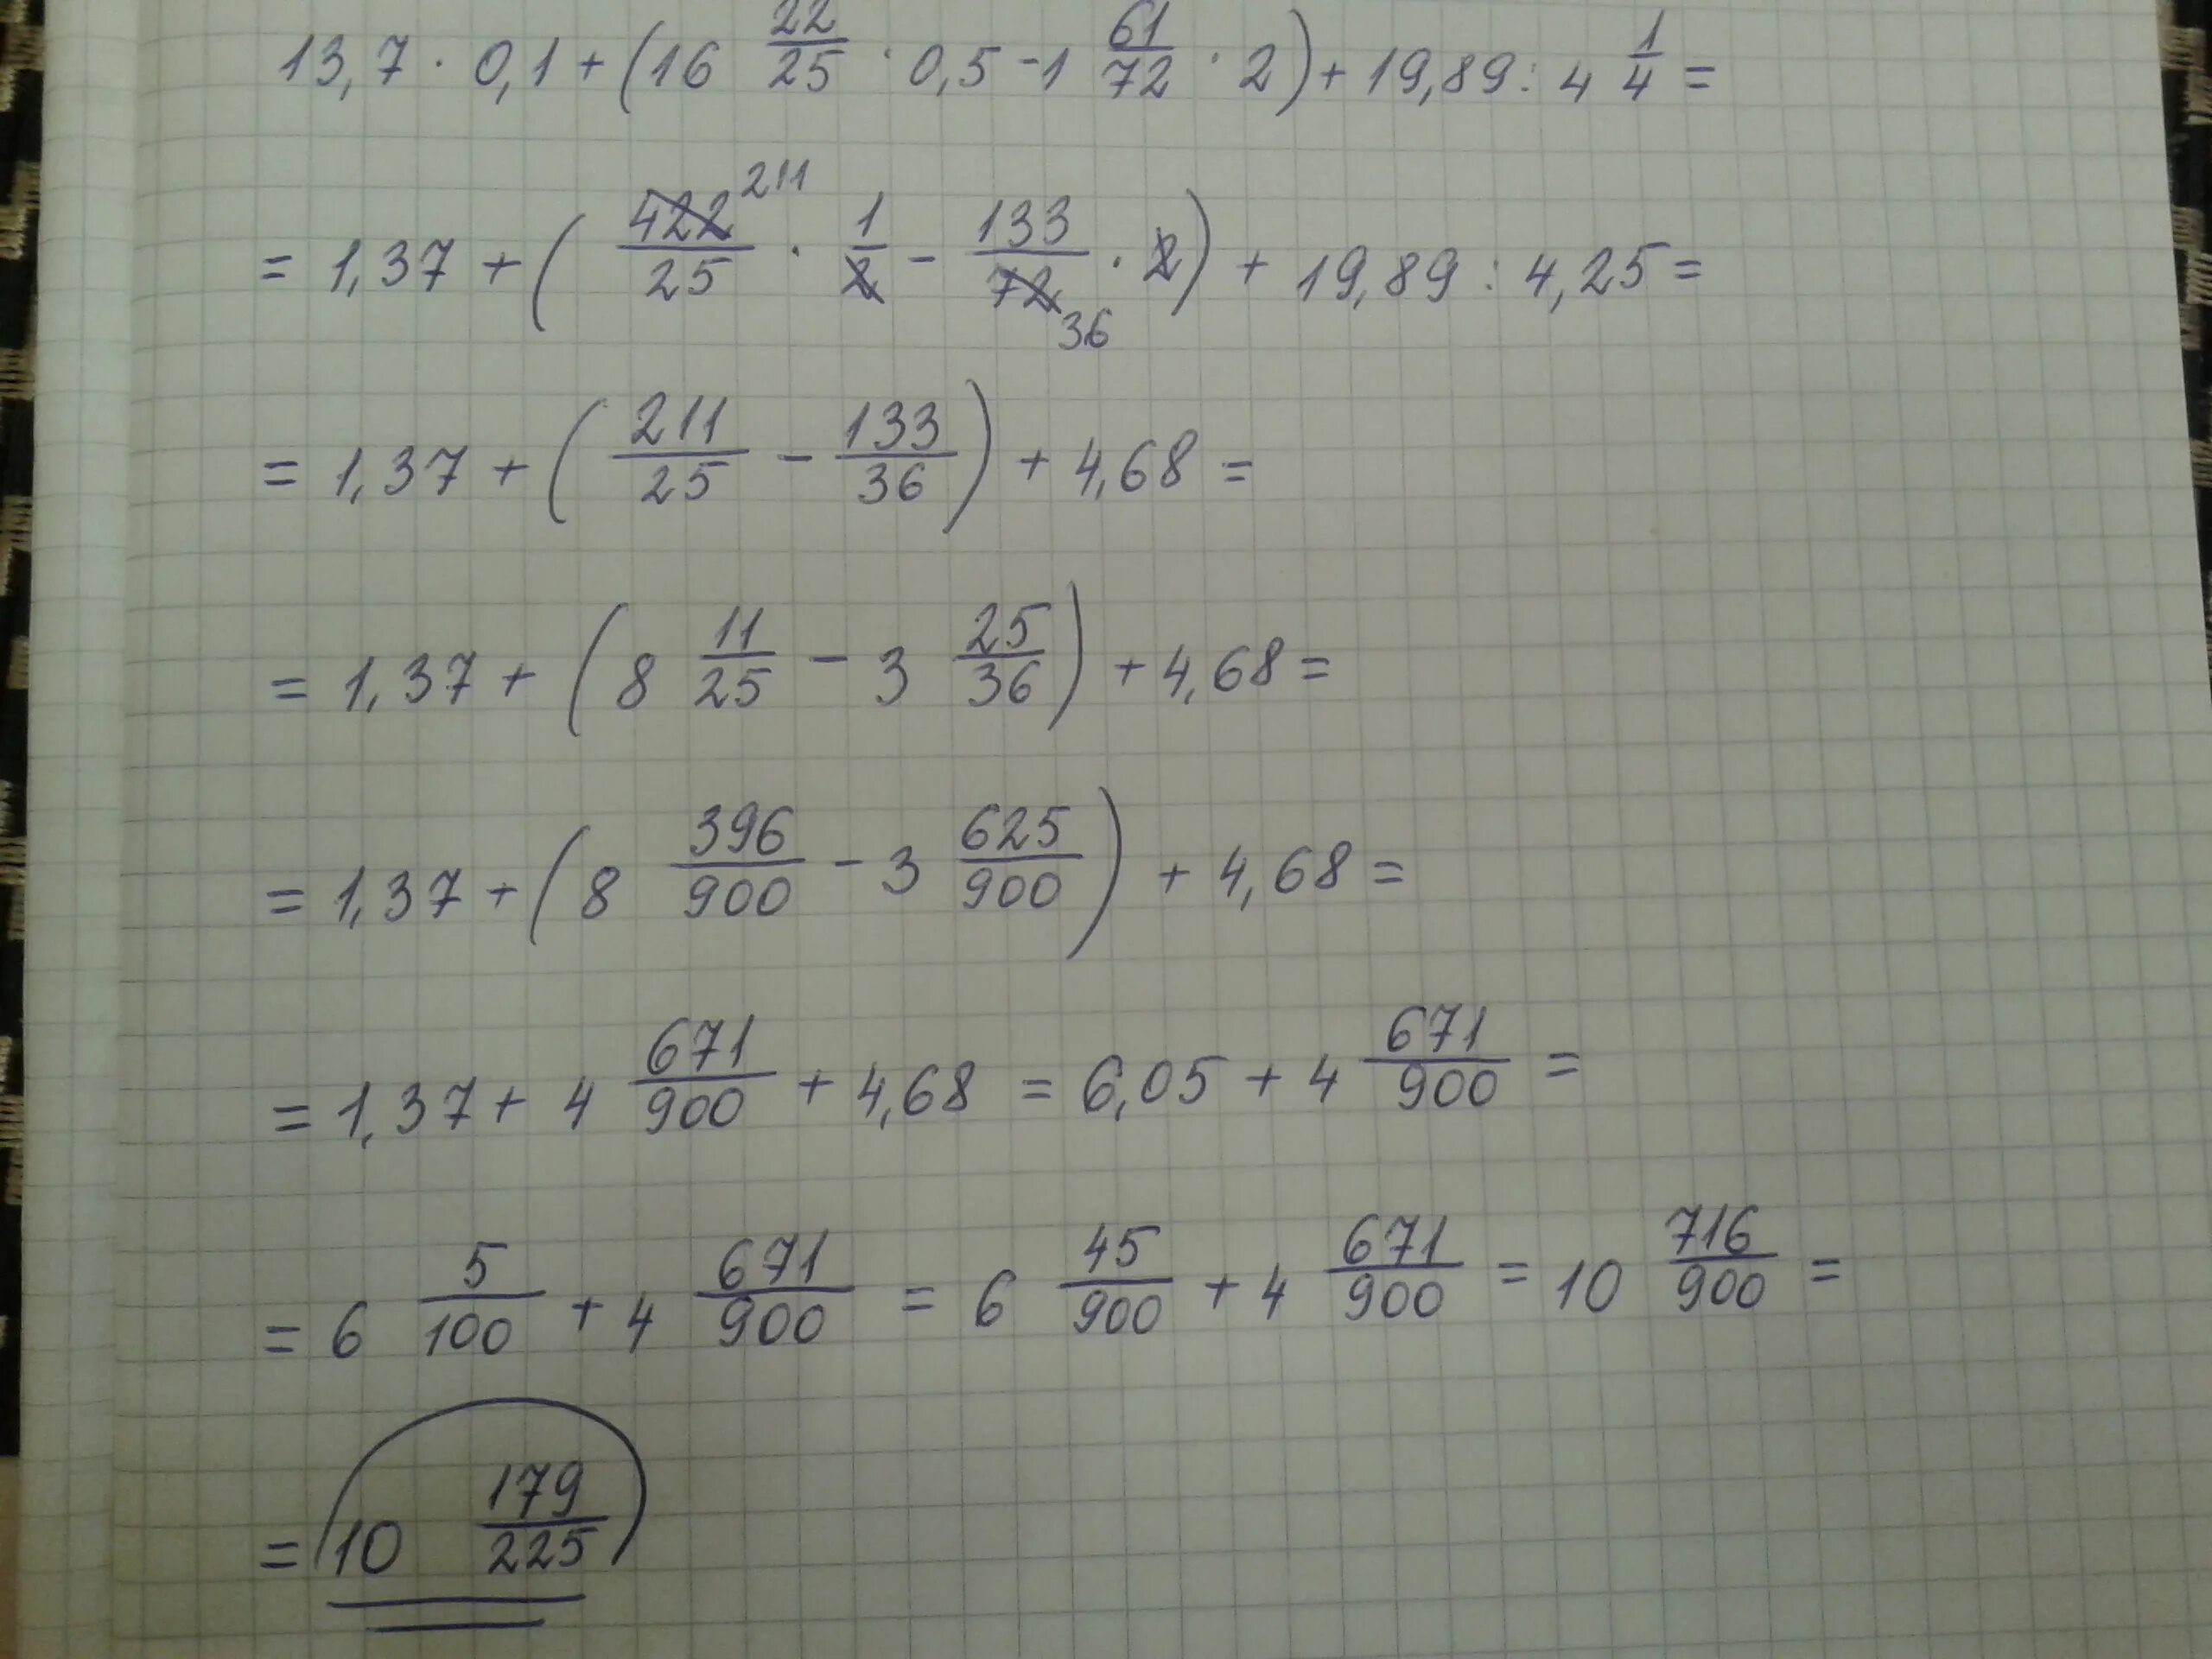 13,7 · 0,1 + (16 22/25 · 0,5 - 1 61/72 · 2) + 19,89 : 4 1/4 =
= 1,37 + (422/25 211 · 1/2 - 133/72 36 · 2) + 19,89 : 4,25 =
= 1,37 + (211/25 - 133/36) + 4,68 =
= 1,37 + (8 11/25 - 3 25/36) + 4,68 =
= 1,37 + (8 396/900 - 3 625/900) + 4,68 =
= 1,37 + 4 671/900 + 4,68 = 6,05 + 4 671/900 =
= 6 5/100 + 4 671/900 = 6 45/900 + 4 671/900 = 10 716/900 =
= 10 179/225